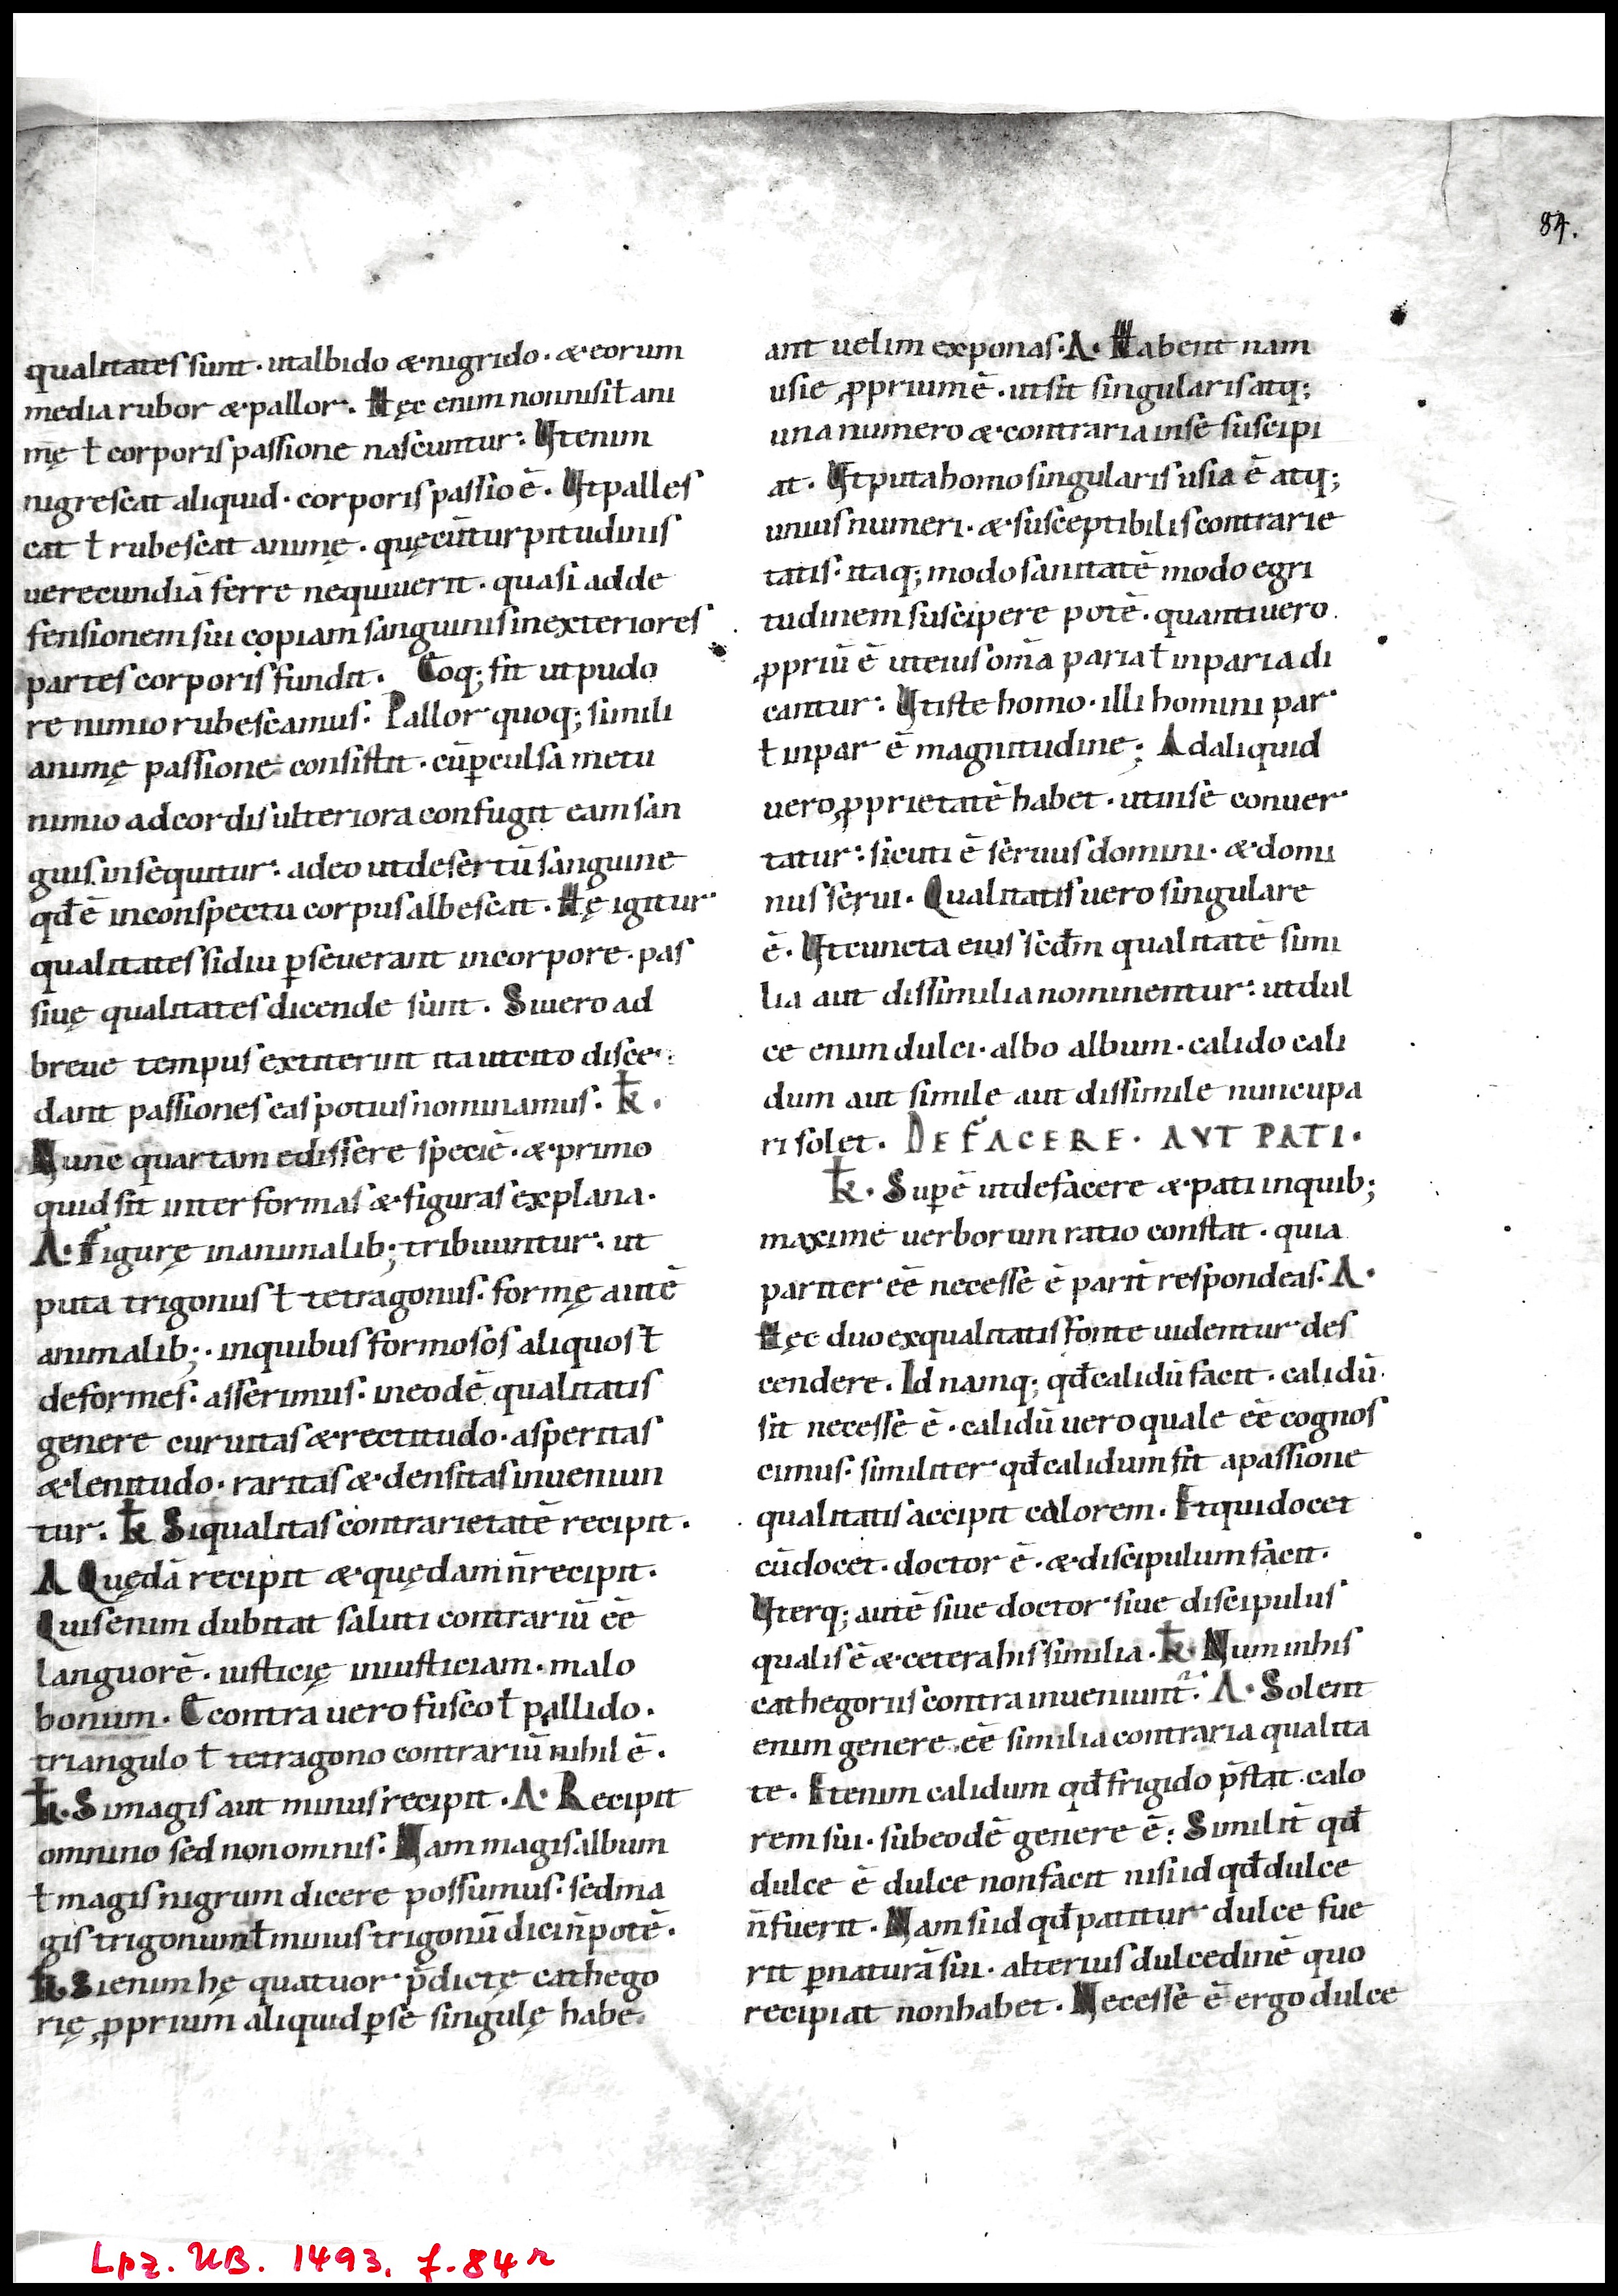 84.
qualitates sunt · ut albido & nigrido · & eorum
media rubor & pallor · Hęc enim non nisi ł ani
mę ł corporis passione nascuntur · Ut enim
nigrescat aliquid · corporis passio ē · Ut palles
cat ł rubescat animę · quę cū turpitudinis
uerecundiā ferre nequiuerit · quasi ad de
fensionem sui copiam sanguinis in exteriores
partes corporis fundit · Eoq; fit ut pudo
re nimio rubescamus · Pallor quoq; simili
animę passione consistit · cū ꝑculsa metu
nimio ad cordis ulteriora confugit eam san
guis insequitur · adeo ut desertū sanguine
qđ ē in conspectu corpus albescat · Hę igitur
qualitates si diu ꝑseuerant in corpore · pas
siuę qualitates dicende sunt · Si uero ad
breue tempus extiterint ita ut cito disce
dant passiones eas potius nominamus · k̄ ·
Nunc quartam edissere speciē · & primo
quid sit inter formas & figuras explana ·
A · Figurę inanimalib; tribuuntur · ut
puta trigonus ł tetragonus · formę autē
animalib; · in quibus formosos aliquos ł
deformes · asserimus · in eodē qualitatis
genere curuitas & rectitudo · asperitas
& lenitudo · raritas & densitas inueniun
tur · k̄ Si qualitas contrarietatē recipit ·
A Quędā recipit & quędam n̄ recipit ·
Quis enim dubitat saluti contrariū eē
languorē · iusticię iniusticiam · malo
bonum · E contra uero fusco ł pallido ·
triangulo ł tetragono contrariū nihil ē ·
k̄ · Si magis aut minus recipit · A · Recipit
omnino sed non omnis · Nam magis album
ł magis nigrum dicere possumus · sed ma
gis trigonum ł minus trigonū dici n̄ potē ·
k̄ · Si enim hę quatuor p̄dictę cathego
rię ꝓprium aliquid ꝑ se singulę habe
ant uelim exponas · A · Habent nam
usie ꝓprium ē · ut sit singularis atq;
una numero & contraria in se suscipi
at · Ut puta homo singularis usia ē atq;
unius numeri · & susceptibilis contrarie
tatis · itaq; modo sanitatē modo egri
tudinem suscipere potē · quanti uero
ꝓpriū ē ut eius om̄a paria ł inparia di
cantur · Ut iste homo · illi homini par
ł inpar ē magnitudine ; Ad aliquid
uero ꝓprietatē habet · ut in se conuer
tatur · sicuti ē seruus domini · & domi
nus serui · Qualitatis uero singulare
ē · Ut cuncta eius scđm qualitatē simi
lia aut dissimilia nominentur · ut dul
ce enim dulci · albo album · calido cali
dum aut simile aut dissimile nuncupa
ri solet · DE FACERE · AUT PATI ·
k̄ · Supē ut de facere & pati in quib;
maxime uerborum ratio constat · quia
pariter eē necesse ē parit̄ respondeas · A ·
Hęc duo ex qualitatis fonte uidentur des
cendere · Id namq; qđ calidū facit · calidū
sit necesse ē · calidū uero quale eē cognos
cimus · similiter qđ calidum fit a passione
qualitatis accipit calorem · Et qui docet
cū docet · doctor ē · & discipulum facit ·
Uterq; autē siue doctor siue discipulus
qualis ē & cetera his similia · k̄ · Num in his
cathegoriis contra inueniunt̃ · A · Solent
enim genere eē similia contraria qualita
te · Etenim calidum qđ frigido p̄stat calo
rem sui · sub eodē genere ē : Similit̄ qđ
dulce ē dulce non facit nisi id qđ dulce
n̄ fuerit · Nam si id qđ patitur dulce fue
rit ꝑ naturā sui · alterius dulcedinē quo
recipiat non habet · Necesse ē ergo dulce
Lpz. UB. 1493, f. 84r